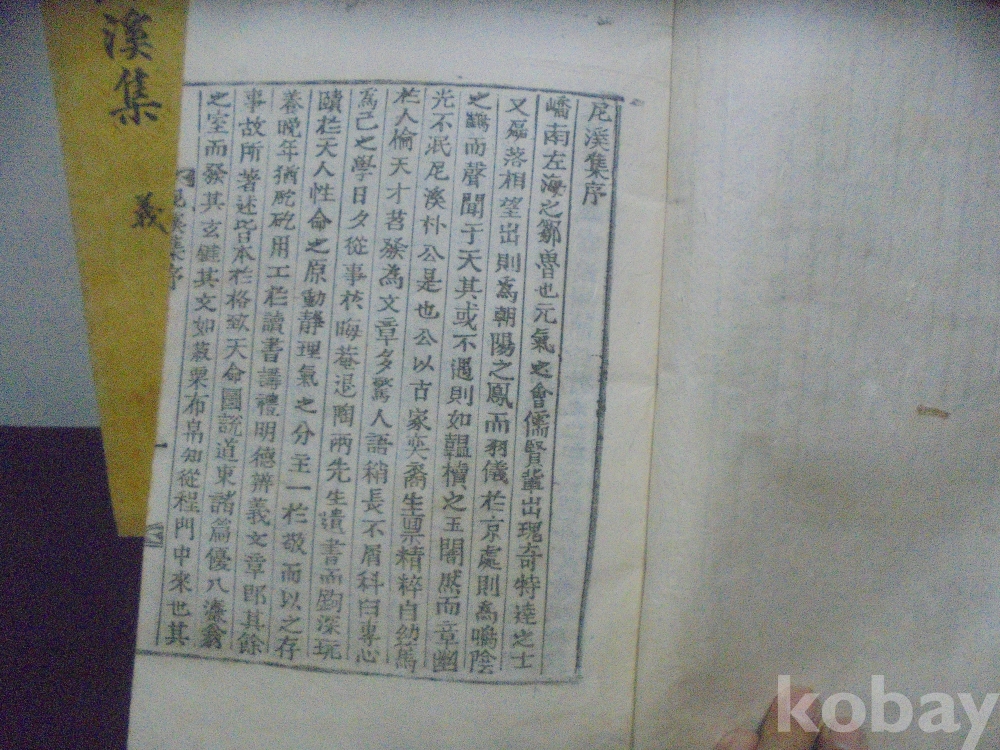 尼溪集序
嶠南左海之鄒魯也元氣之會儒賢輩出瑰奇特達之士
又磊落相望出則爲朝陽之鳳而羽儀於京處則爲鳴陰
之鶴而聲聞于天其或不遇則如韞櫝之玉闇然而章幽
光不泯尼溪朴公是也公以古家奕裔生稟精粹自幼篤
於人倫天才苕發爲文章多驚人語稍長不屑科臼專心
爲己之學日夕從事於晦菴退陶兩先生遺書而鉤深玩
賾於天人性命之原動靜理氣之分主一於敬而以之存
養晚年猶矻矻用工於讀書講禮明德辨義文章卽其餘
事故所著述皆本於格致天命圖說道東諸篇優入濂翁
之室而發其玄鍵其文如菽粟布帛知從程門中來也其
尼溪集序
一
溪集
義
kobay